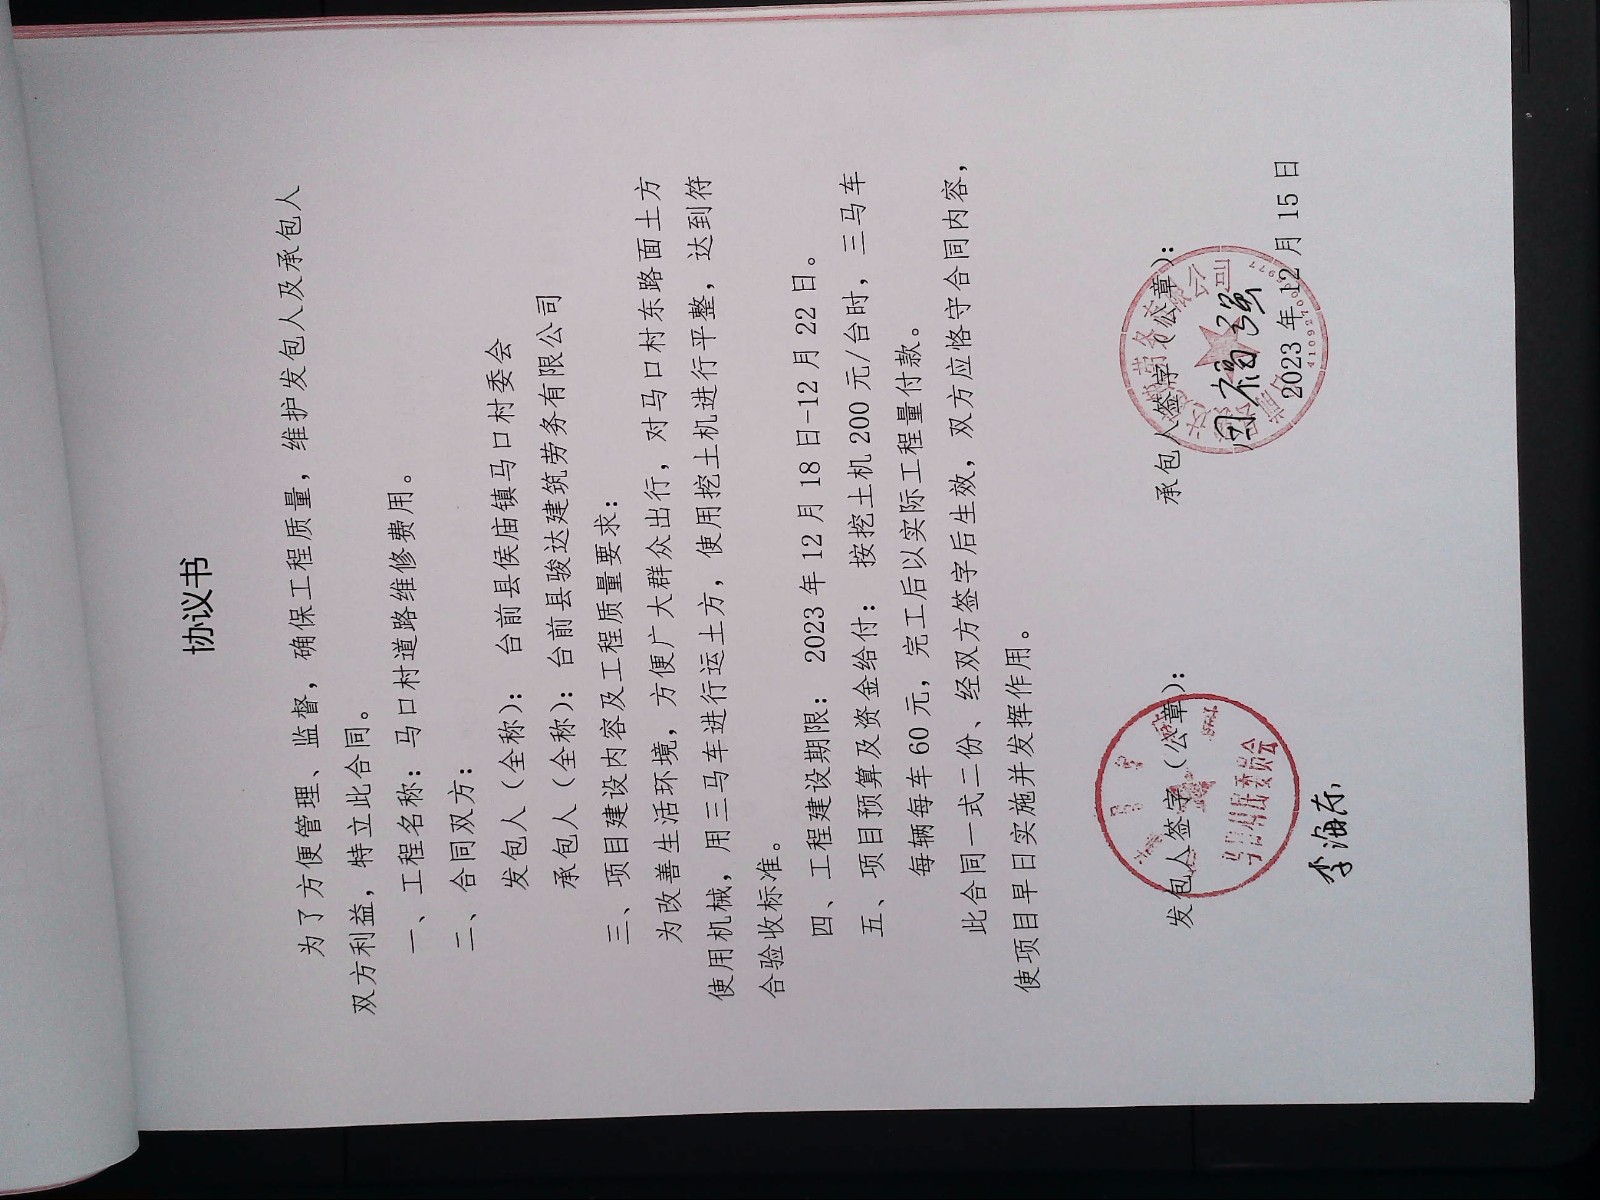 协议书
为了方便管理、监督，确保工程质量，维护发包人及承包人
双方利益，特立此合同。
一、工程名称：马口村道路维修费用。
二、合同双方：
发包人（全称）： 台前县侯庙镇马口村委会
承包人（全称）：台前县骏达建筑劳务有限公司
三、项目建设内容及工程质量要求：
为改善生活环境，方便广大群众出行，对马口村东路面土方
使用机械，用三马车进行运土方，使用挖土机进行平整，达到符
合验收标准。
四、工程建设期限： 2023 年 12 月 18 日-12 月 22 日。
五、项目预算及资金给付： 按挖土机 200 元/台时，三马车
每辆每车 60 元，完工后以实际工程量付款。
此合同一式二份、经双方签字后生效，双方应恪守合同内容，
使项目早日实施并发挥作用。
发包人签字（公章）： 承包人签字（公章）：
马口村村民委员会
李海东
2023 年 12 月 15 日